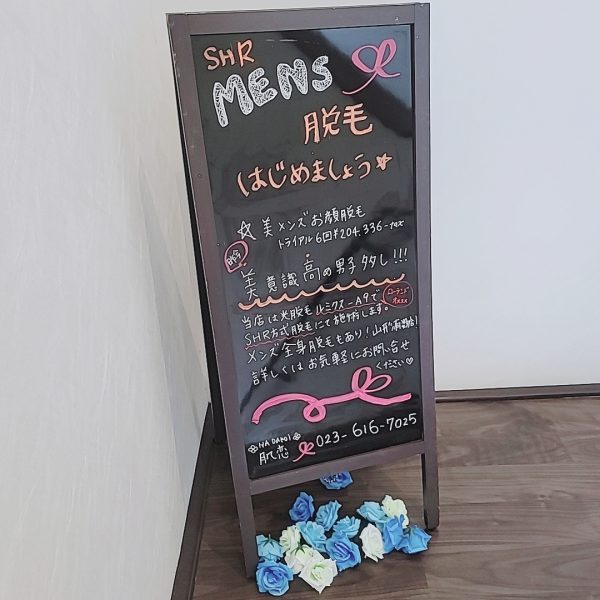 SHR
MENS
脱毛
はじめましょう
☆美メンズお顔脱毛
トライアル6回¥204.336-tax
美意識高め男子多し!!!
当店は光脱毛ルミクス-A9で
SHR方式脱毛にて施術します。
メンズ全身脱毛もあり!山形
詳しくはお気軽にお問い合せ
ください♡
HADAKOI
肌恋 023-616-7025